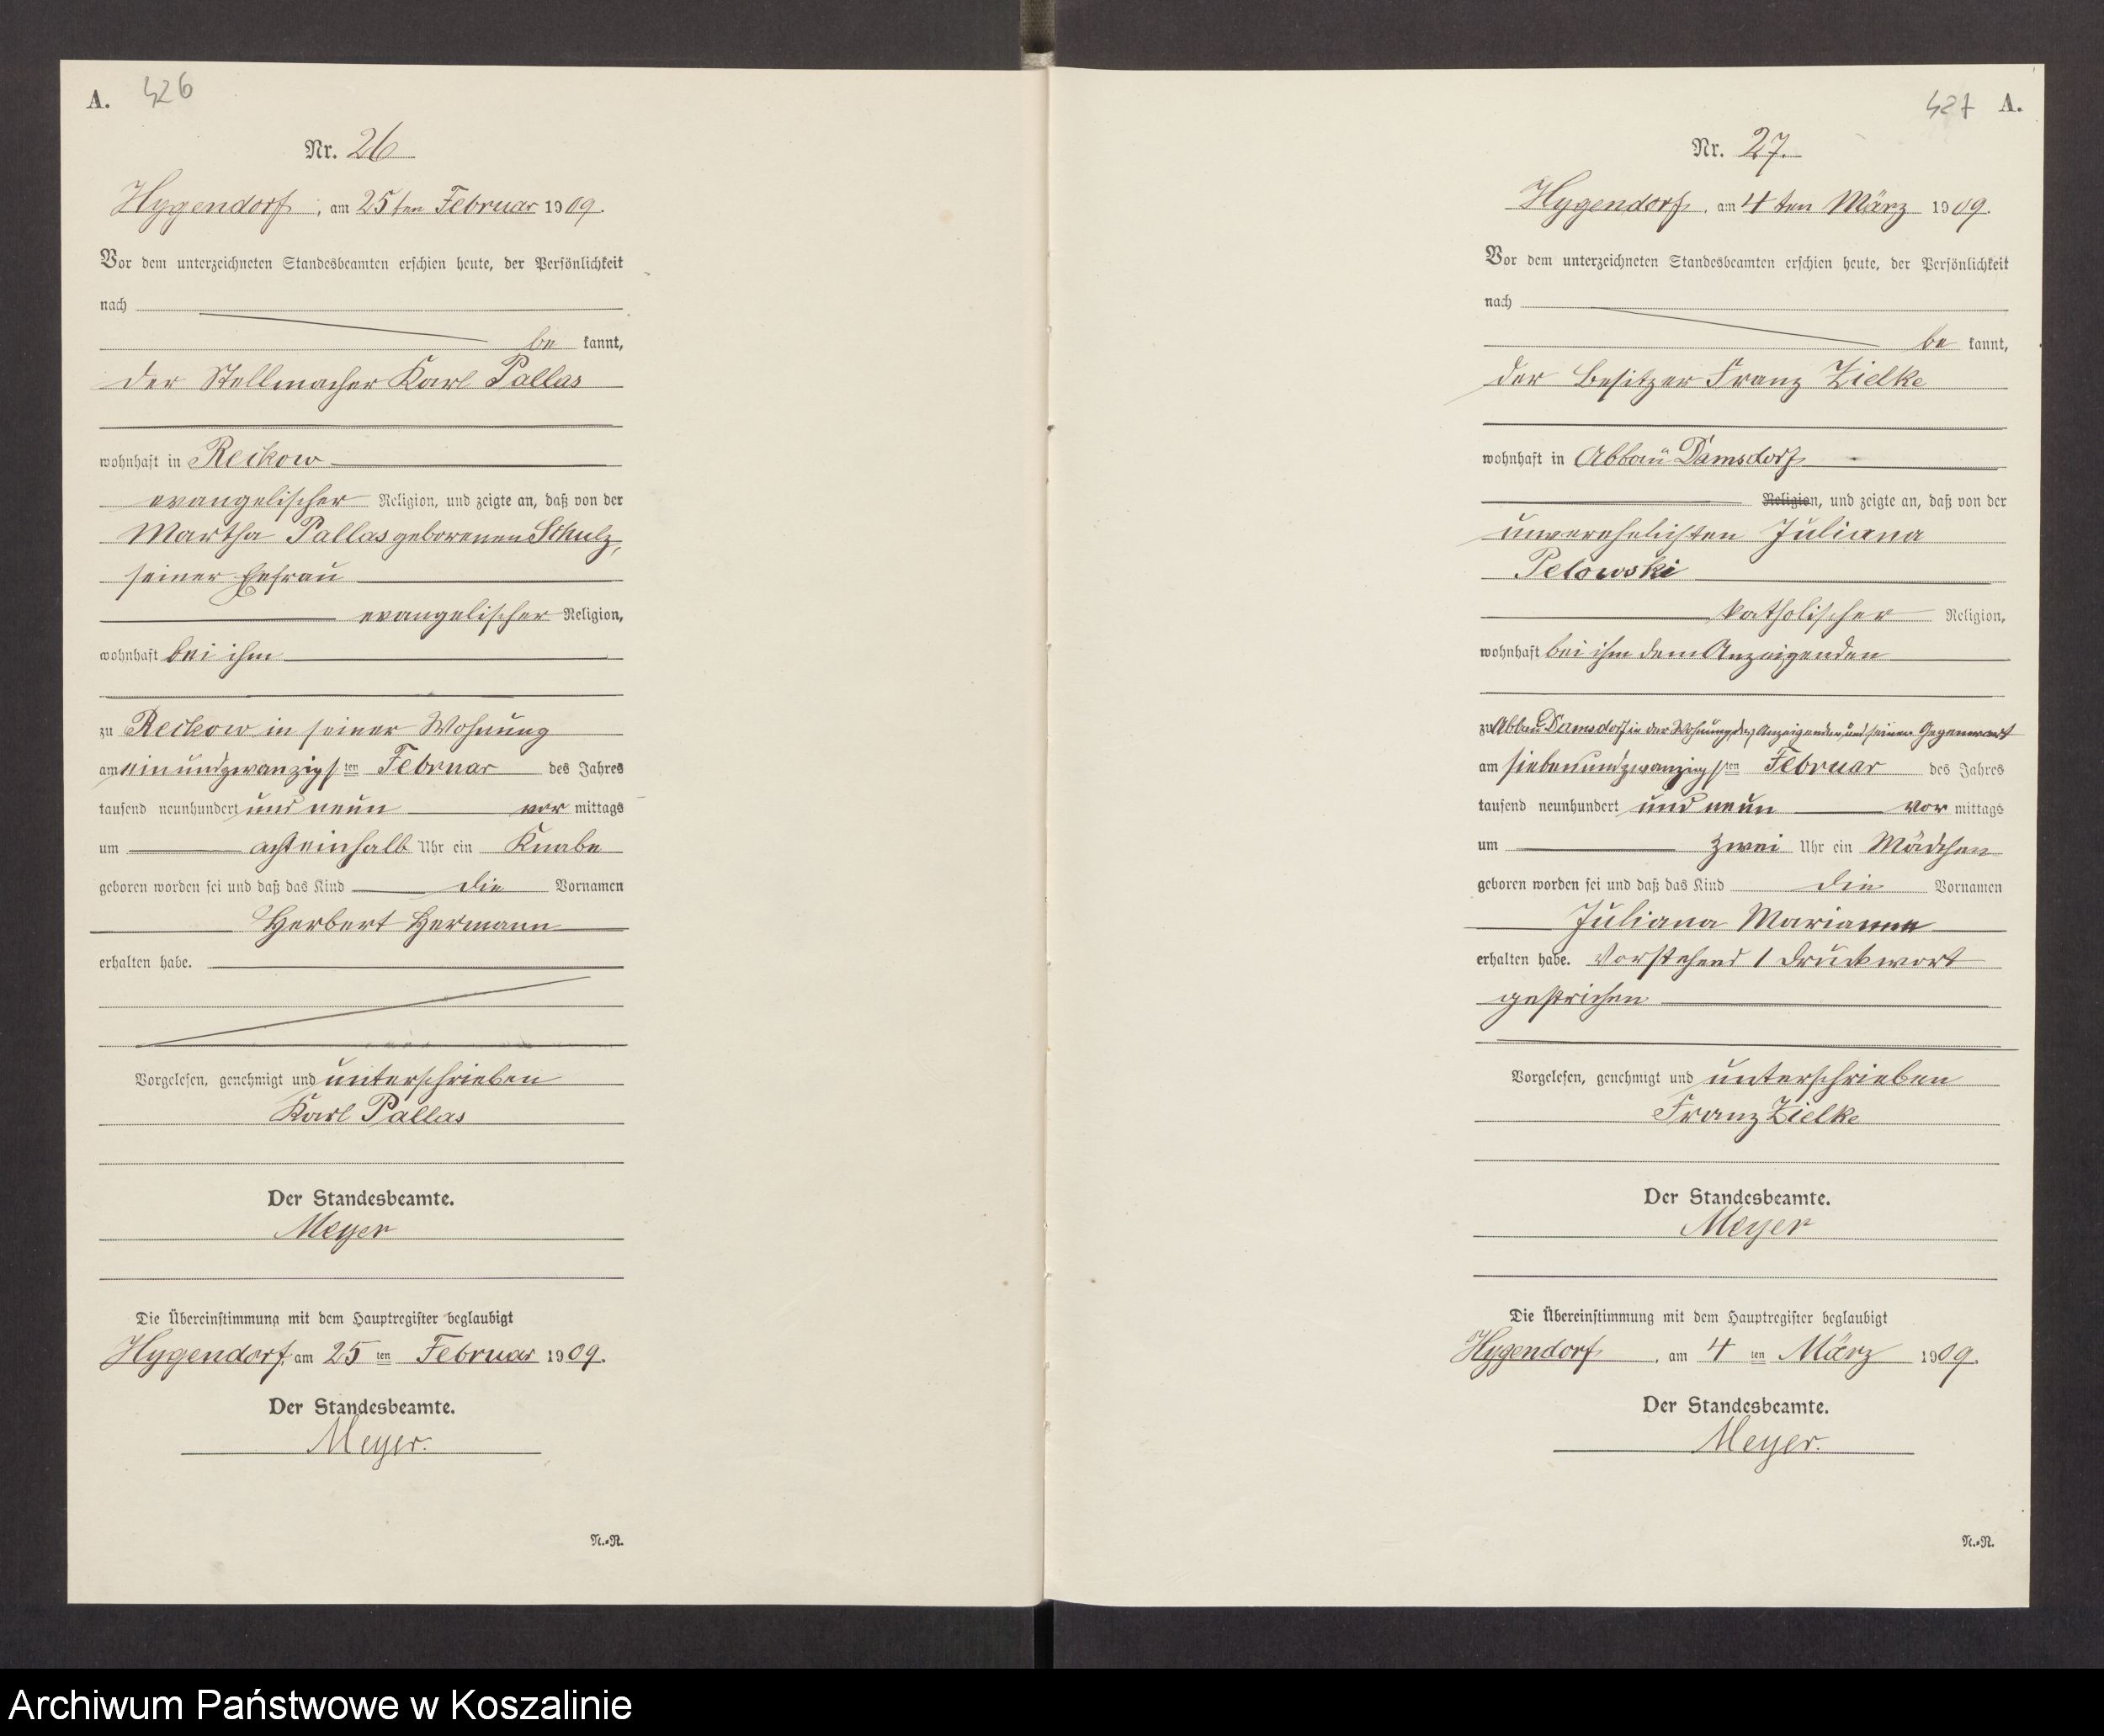 A. 426
Nr. 26
Hygendorf, am 25ten Februar 1909.
Vor dem unterzeichneten Standesbeamten erschien heute, der Persönlichkeit
nach
be kannt,
der Stellmacher Karl Pallas
wohnhaft in Reckow
evangelischer Religion, und zeigte an, daß von der
Martha Pallas geborenen Schulz,
seiner Ehefrau
evangelischer Religion,
wohnhaft bei ihm
zu Reckow in seiner Wohnung
am einundzwanzigsten Februar des Jahres
tausend neunhundert und neun vor mittags
um achteinhalb Uhr ein Knabe
geboren worden sei und daß das Kind die Vornamen
Herbert Hermann
erhalten habe.
Vorgelesen, genehmigt und unterschrieben
Karl Pallas
Der Standesbeamte.
Meyer
Die Übereinstimmung mit dem Hauptregister beglaubigt
Hygendorf, am 25 ten Februar 1909.
Der Standesbeamte.
Meyer.
N.-R.
427 A.
Nr. 27.
Hygendorf, am 4ten März 1909.
Vor dem unterzeichneten Standesbeamten erschien heute, der Persönlichkeit
nach
be kannt,
der Besitzer Franz Zielke
wohnhaft in Abbau Damsdorf
Religion, und zeigte an, daß von der
unverehelichten Juliana
Pelowski
katholischer Religion,
wohnhaft bei ihm dem Anzeigenden
zu Abbau Damsdorf in der Wohnung des Anzeigenden und seiner Gegenwart
am siebenundzwanzigsten Februar des Jahres
tausend neunhundert und neun vor mittags
um zwei Uhr ein Mädchen
geboren worden sei und daß das Kind die Vornamen
Juliana Marianna
erhalten habe. Vorstehend 1 Druckwort
gestrichen
Vorgelesen, genehmigt und unterschrieben
Franz Zielke
Der Standesbeamte.
Meyer
Die Übereinstimmung mit dem Hauptregister beglaubigt
Hygendorf, am 4 ten März 1909.
Der Standesbeamte.
Meyer.
N.-R.
Archiwum Państwowe w Koszalinie